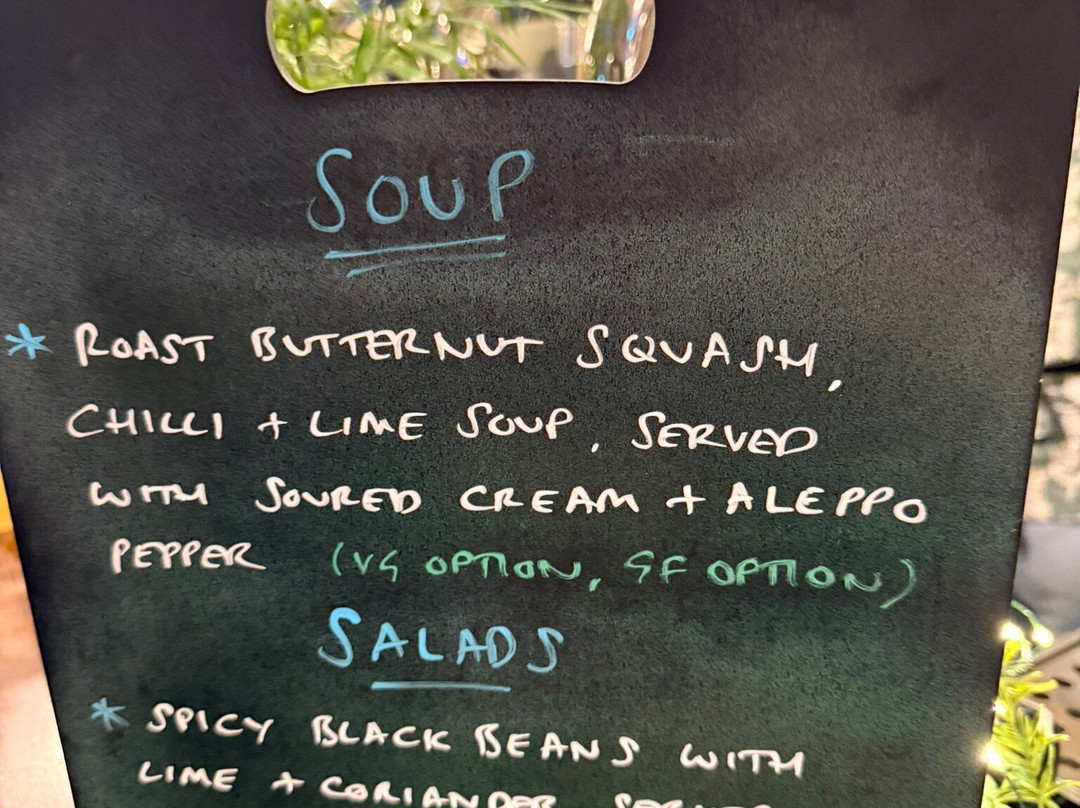 SOUP
* ROAST BUTTERNUT SQUASH,
CHILLI + LIME SOUP, SERVED
WITH SOURED CREAM + ALEPPO
PEPPER (VG OPTION, GF OPTION)
SALADS
* SPICY BLACK BEANS WITH
LIME + CORIANDER